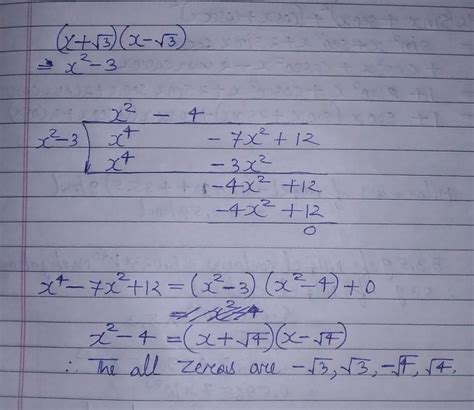 (x+√3)(x-√3)
= x²-3
x² - 4
x²-3 x⁴ - 7x² + 12
x⁴ - 3x²
-4x² +12
-4x² +12
0
x⁴- 7x²+12 = (x²-3) (x²-4) + 0
x²-4 = (x+√4)(x-√4)
∴ The all zeros are -√3, √3, -√4, √4.